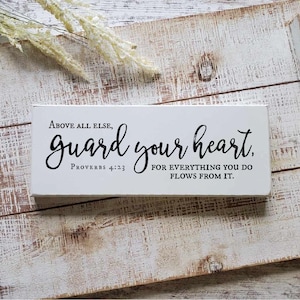 Above all else,
guard your heart,
Proverbs 4:23 for everything you do
flows from it.